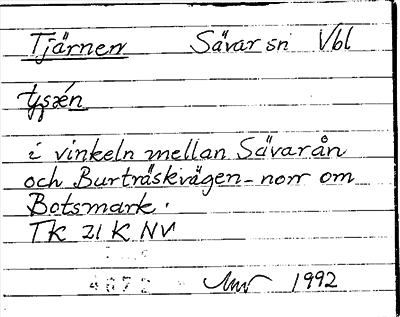 Tjärnen Sävar sn Vbl
i vinkeln mellan Sävarån
och Burträskvägen - norr om
Botsmark.
TK 21 K NV
1992